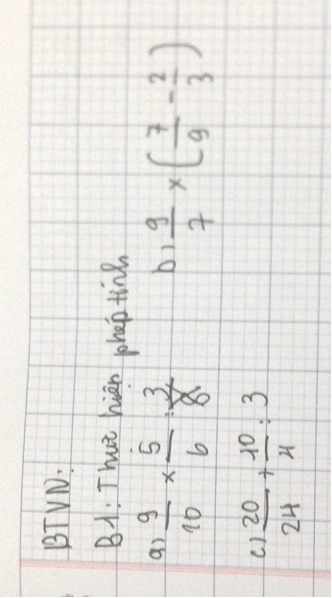 BTVN:
B1: Thực hiện phép tính
a, 9/10 × 5/6 : 3/8 b, 9/7 × (7/9 - 2/3)
c) 20/24 + 10/4 : 3